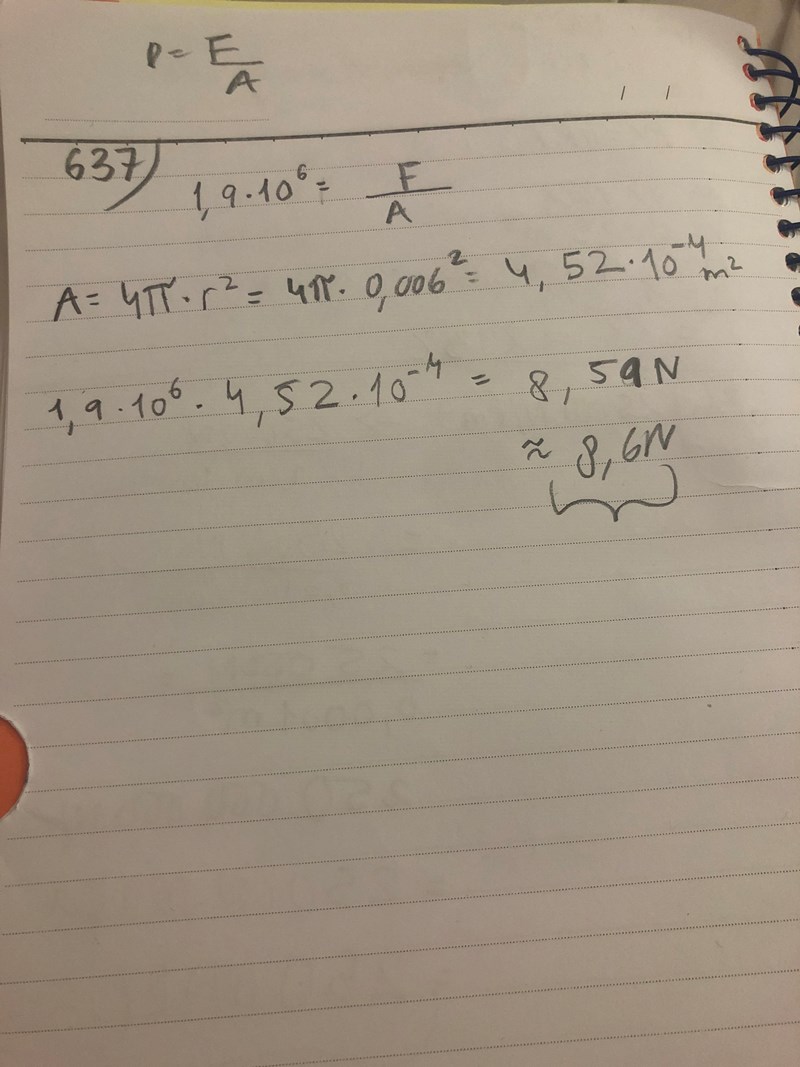 P = F/A
637) 1,9·10⁶ = F/A
A = 4π·r² = 4π·0,006² = 4,52·10⁻⁴ m²
1,9·10⁶·4,52·10⁻⁴ = 8,59N
≈ 8,6N